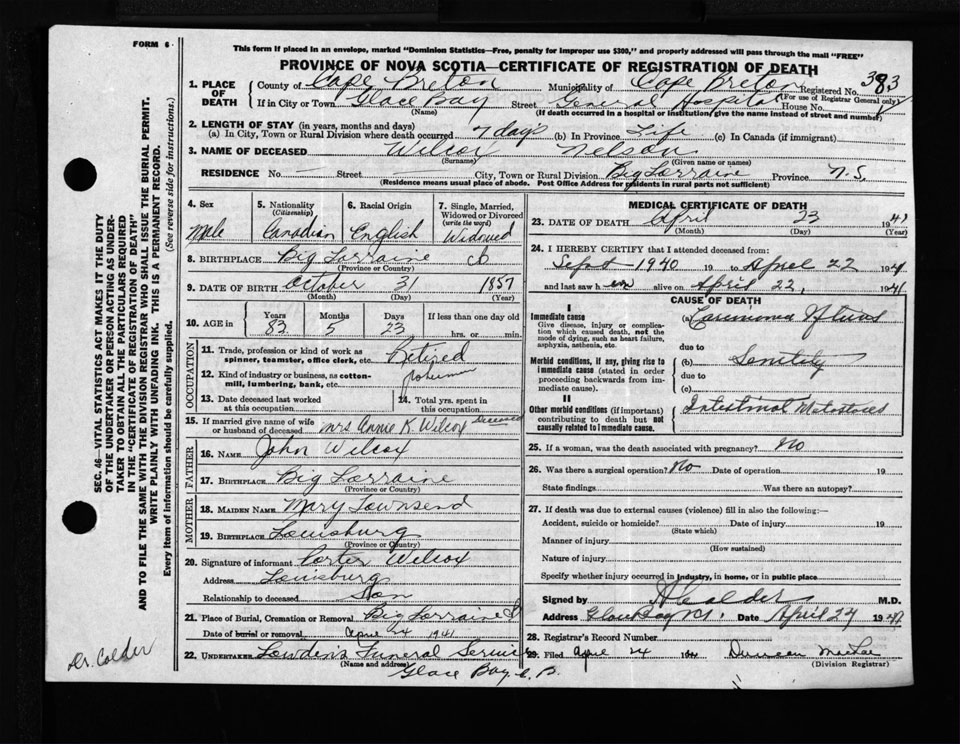 FORM 6
This form if placed in an envelope, marked "Dominion Statistics—Free, penalty for improper use $300," and properly addressed will pass through the mail "FREE"
PROVINCE OF NOVA SCOTIA—CERTIFICATE OF REGISTRATION OF DEATH
1. PLACE OF DEATH County of Cape Breton Municipality of Cape Breton Registered No. 383
(For use of Registrar General only)
If in City or Town Glace Bay Street General Hospital House No.
(Name) (If death occurred in a hospital or institution give the name instead of street and number)
2. LENGTH OF STAY (in years, months and days)
(a) In City, Town or Rural Division where death occurred 7 days (b) In Province Life (c) In Canada (if immigrant)
3. NAME OF DECEASED Wilcox Nelson
(Surname) (Given name or names)
RESIDENCE No. — Street — City, Town or Rural Division Big Lorraine Province N.S.
(Residence means usual place of abode. Post Office Address for residents in rural parts not sufficient)
4. Sex Male
5. Nationality (Citizenship) Canadian
6. Racial Origin English
7. Single, Married, Widowed or Divorced (write the word) Widowed
8. BIRTHPLACE Big Lorraine CB
(Province or Country)
9. DATE OF BIRTH October 31 1857
(Month) (Day) (Year)
10. AGE in Years 83 Months 5 Days 23 If less than one day old hrs. or min.
OCCUPATION
11. Trade, profession or kind of work as spinner, teamster, office clerk, etc. Retired
12. Kind of industry or business, as cotton-mill, lumbering, bank, etc. fisherman
13. Date deceased last worked at this occupation
14. Total yrs. spent in this occupation
15. If married give name of wife or husband of deceased Mrs Annie K Wilcox Deceased
FATHER
16. NAME John Wilcox
17. BIRTHPLACE Big Lorraine
(Province or Country)
MOTHER
18. MAIDEN NAME Mary Townsend
19. BIRTHPLACE Louisburg
(Province or Country)
20. Signature of informant Porter Wilcox
Address Louisburg
Relationship to deceased Son
21. Place of Burial, Cremation or Removal Big Lorraine
Date of burial or removal April 24 1941
22. UNDERTAKER Lowden's Funeral Service
(Name and address)
Glace Bay C.B.
MEDICAL CERTIFICATE OF DEATH
23. DATE OF DEATH April 23 1941
(Month) (Day) (Year)
24. I HEREBY CERTIFY that I attended deceased from:
Sept 1940 19 to April 22 1941
and last saw him alive on April 22, 1941
CAUSE OF DEATH
I
Immediate cause
Give disease, injury or complication which caused death, not the mode of dying, such as heart failure, asphyxia, asthenia, etc.
(a) Carcinoma of
due to
Morbid conditions, if any, giving rise to immediate cause (stated in order proceeding backwards from immediate cause).
(b) Senility
due to
(c)
II
Other morbid conditions (if important) contributing to death but not causally related to immediate cause.
Intestinal Metastases
25. If a woman, was the death associated with pregnancy? No
26. Was there a surgical operation? No Date of operation 19
State findings Was there an autopsy?
27. If death was due to external causes (violence) fill in also the following:—
Accident, suicide or homicide? Date of injury 19
(State which)
Manner of injury
(How sustained)
Nature of injury
Specify whether injury occurred in industry, in home, or in public place
Signed by A Calder M.D.
Address Glace Bay NS. Date April 24 1941
28. Registrar's Record Number
29. Filed April 24 1941 Duncan MacRae
(Division Registrar)
SEC. 46—VITAL STATISTICS ACT MAKES IT THE DUTY
OF THE UNDERTAKER OR PERSON ACTING AS UNDER-
TAKER TO OBTAIN ALL THE PARTICULARS REQUIRED
IN THE "CERTIFICATE OF REGISTRATION OF DEATH"
AND TO FILE THE SAME WITH THE DIVISION REGISTRAR WHO SHALL ISSUE THE BURIAL PERMIT.
WRITE PLAINLY WITH UNFADING INK. THIS IS A PERMANENT RECORD.
Every item of information should be carefully supplied. (See reverse side for instructions.)
Dr. Calder